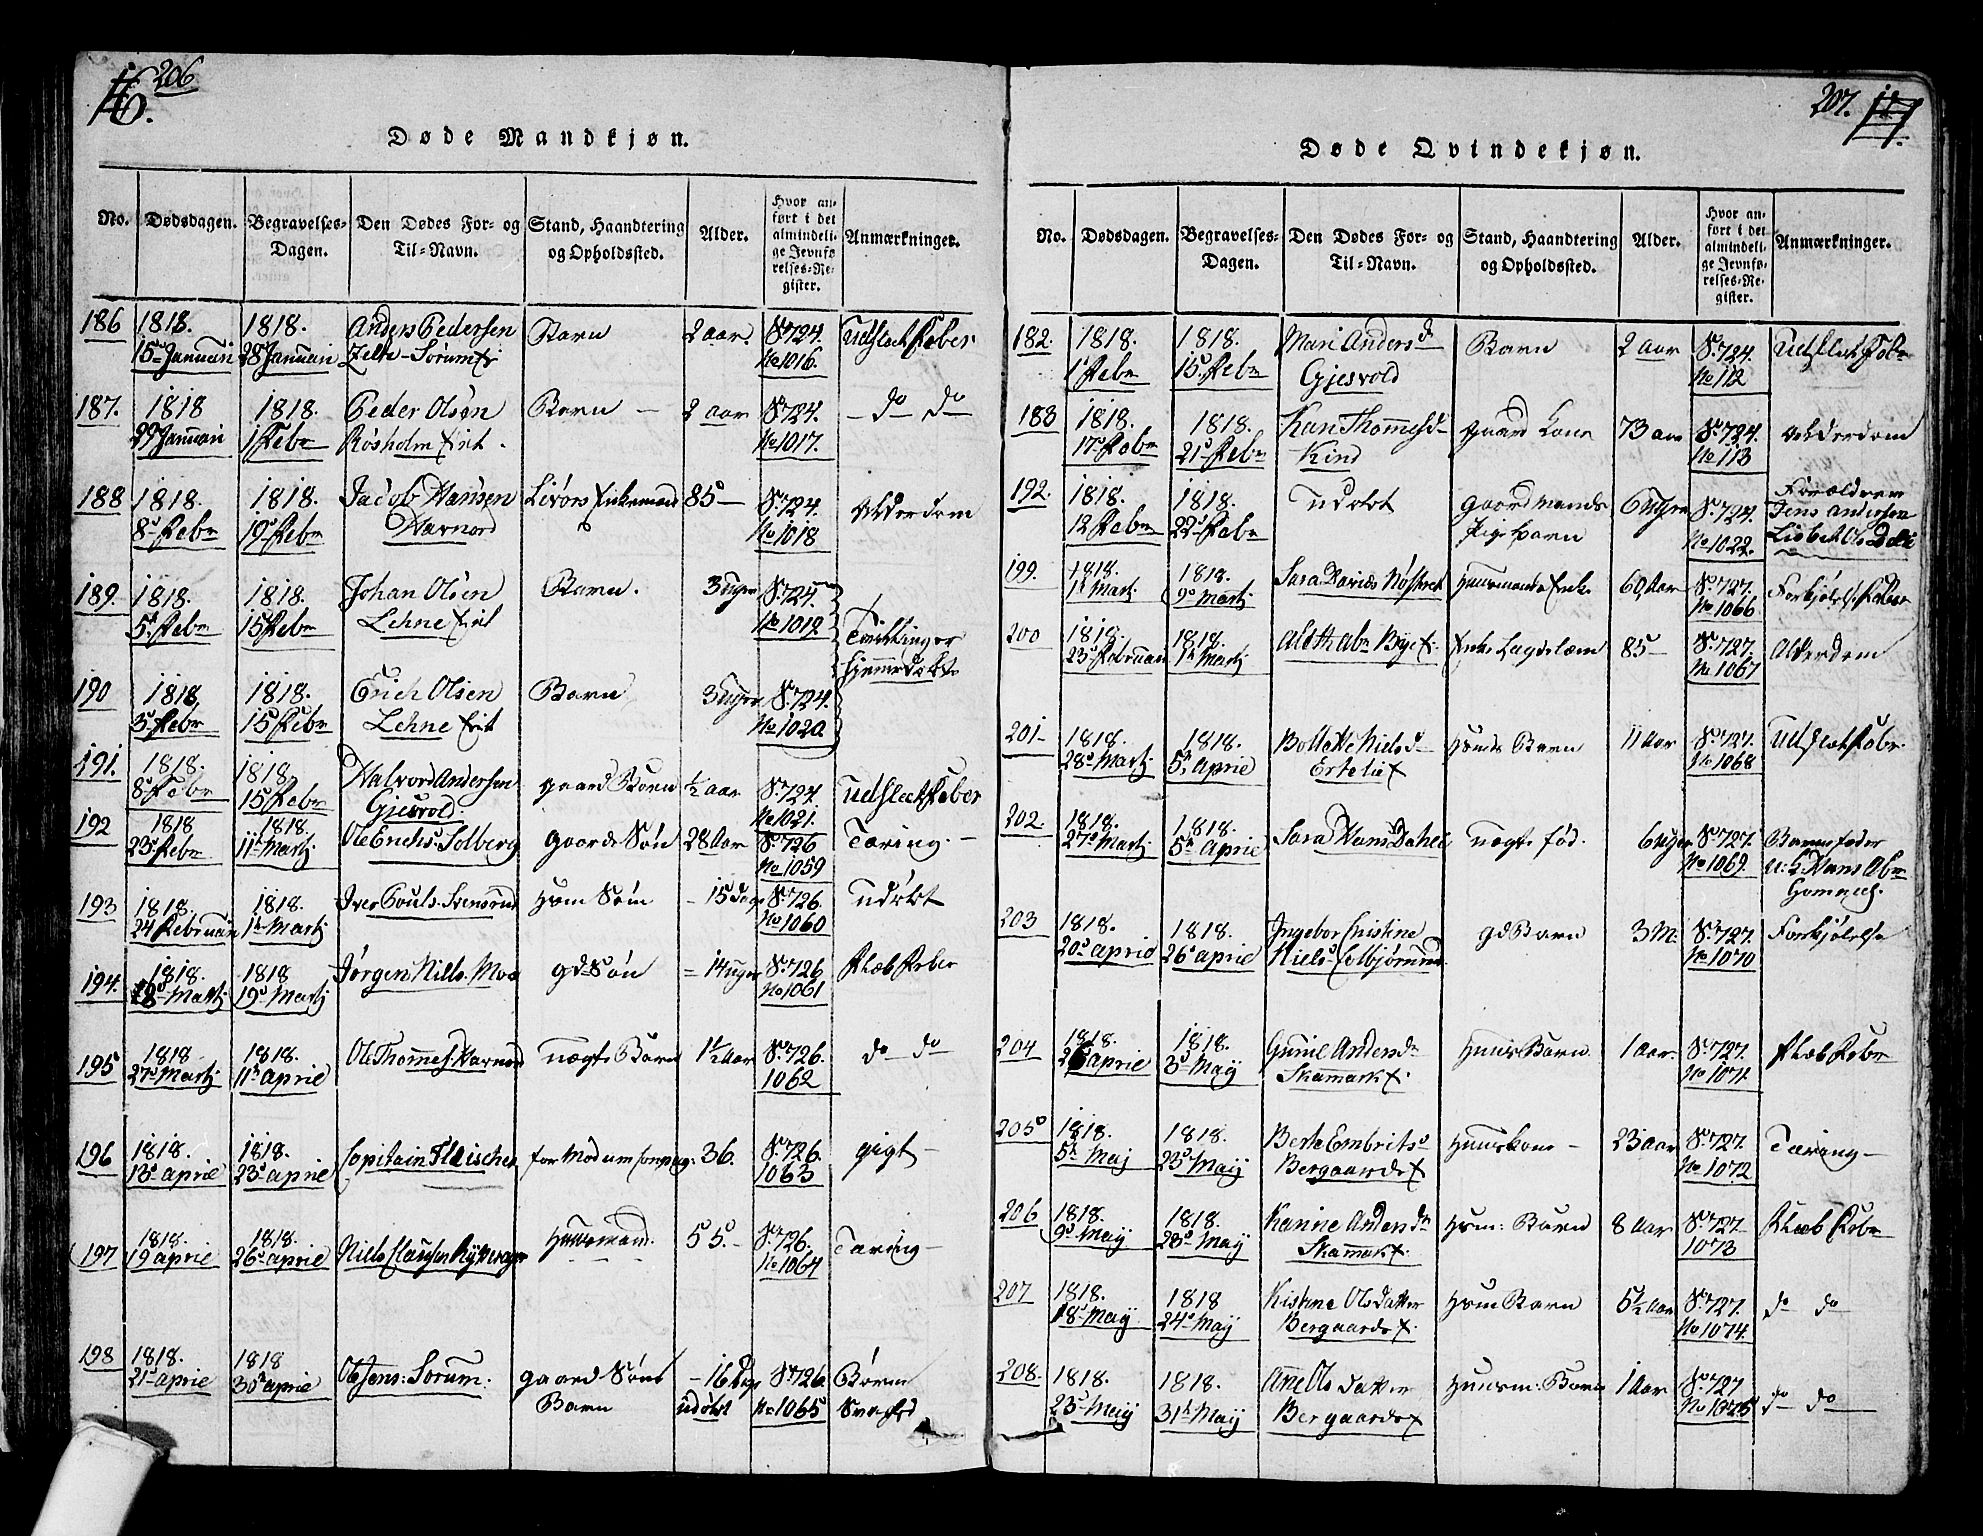 206
16.
Døde Mandkjøn.
No. Dødsdagen. Begravelses-Dagen. Den Dødes For- og Til-Navn. Stand, Haandtering og Opholdssted. Alder. Hvor anført i det almindelige Jevnførelses-Register. Anmærkninger.
186 1818. 15de Januari 1818. 28 Januari Anders Pedersen Barn 2 aar S. 724. No 1016.
187. 1818 29 Januari 1818. 1 Febr Peder Olsen Rosholm Barn 2 aar S. 724. No 1017. do do
188 1818. 8 Febr 1818. 19 Febr Jacob Hansen Havnord 85 S. 724. No 1018 Alderdom
189. 1818. 5 Febr 1818. 15 Febr Johan Olsen Lehne Barn. 3 Uger S. 724. No 1019 Tvillinger hjemmedøbte
190 1818. 5 Febr 1818. 15 Febr Erich Olsen Lehne Barn 3 Uger S. 724. No 1020
191. 1818. 8 Febr 1818. 15 Febr Halvord Andersen Gjesvold gaard Barn ½ aar S. 724. No 1021.
192 1818 23 Febr 1818. 11 Martj Ole Erichs. Solberg gaards Søn 28 Aar S. 726 No 1059 Tæring.
193 1818. 24 Februari 1818. 1 Martj Iver Pouls. Svensrud Hsm Søn 15 dage S. 726. No 1060 Udøbt
194. 1818. 8 Martj 1818 19 Martj Jørgen Niels. Moe gd Søn 14 uger S. 726. No 1061
195 1818 27 Martj 1818. 11 Aprie Ole Thommes. Havnord Barn 1½ Aar S. 726. 1062 do do
196 1818. 13 aprie 1818. 23 aprie Capitain Fleischer for Modum Compag: 36. S. 726. 1063 gigt
197 1818. 19 aprie 1818. 26 aprie Niels Clausen Huusmand. 55. S. 726. No 1064 Tæring
198 1818. 21 aprie 1818 30 aprie Ole Jens: Sorum. gaard Søns Barn 16 Dage udøbt S. 726. No 1065
207. 17.
Døde Qvindekjøn.
No. Dødsdagen. Begravelses-Dagen. Den Dødes For- og Til-Navn. Stand, Haandtering og Opholdssted. Alder. Hvor anført i det almindelige Jevnførelses-Register. Anmærkninger.
182. 1818. 1 Febr 1818. 15 Febr Mari Andersd Gjesvold Barn 2 Aar S. 724. No 112
183 1818. 17 Febr 1818. 21 Febr Kari Thommesd Kind gaard Kone 73 aar S. 724. No 113 Alderdom
192. 1818. 12 Febr 1818. 22 Febr Udøbt gaardmands Pigebarn 6 Uger S. 724. No 1022. Forældrene Jens Andersen Lisbet Olsd
199. 1818. 1 Martj 1818. 9 Martj Sara Huusmands Enke 60 Aar S. 727. No 1066
200 1818. 23 Februari 1818. 1 Martj Enke Lægdslem 85 S. 727. No 1067 Alderdom
201 1818. 28 Martj 1818. 5 Aprie Bolette Nielsd Hsmds Barn 11 Aar S. 727. No 1068
202. 1818. 27 Martj 1818. 5 Aprie Sara Hans Dahle uægte fød. 6 Uger S. 727. No 1069. Barnefader
203 1818. 20 aprie 1818. 26 aprie Ingebor Cristine Niels gd Barn 3 M: S. 727. No 1070 Forkjølelse
204 1818. 26 aprie 1818. 3 Maij Gunil Andersd Huus Barn 1 Aar. S. 727. No 1071.
205 1818. 5 Maj 1818. 23 Maij Berte Embrits Bergaards Huuskone 23 aar S. 727. No 1072 Tæring
206 1818. 9 Maij 1818. 23 Maij Karine Andersd Hsm: Barn 8 Aar S. 727. 1073
207 1818. 18 Maij 1818 24 Maij Kistine Olsdatter Bergaards Hsm Barn 5½ Aar S. 727. No 1074. do do
208. 1818. 23 Maij 1818. 31 Maij Anne Olsdatter Bergaards Huusm: Barn 1 Aar S. 727 No 1075 do do